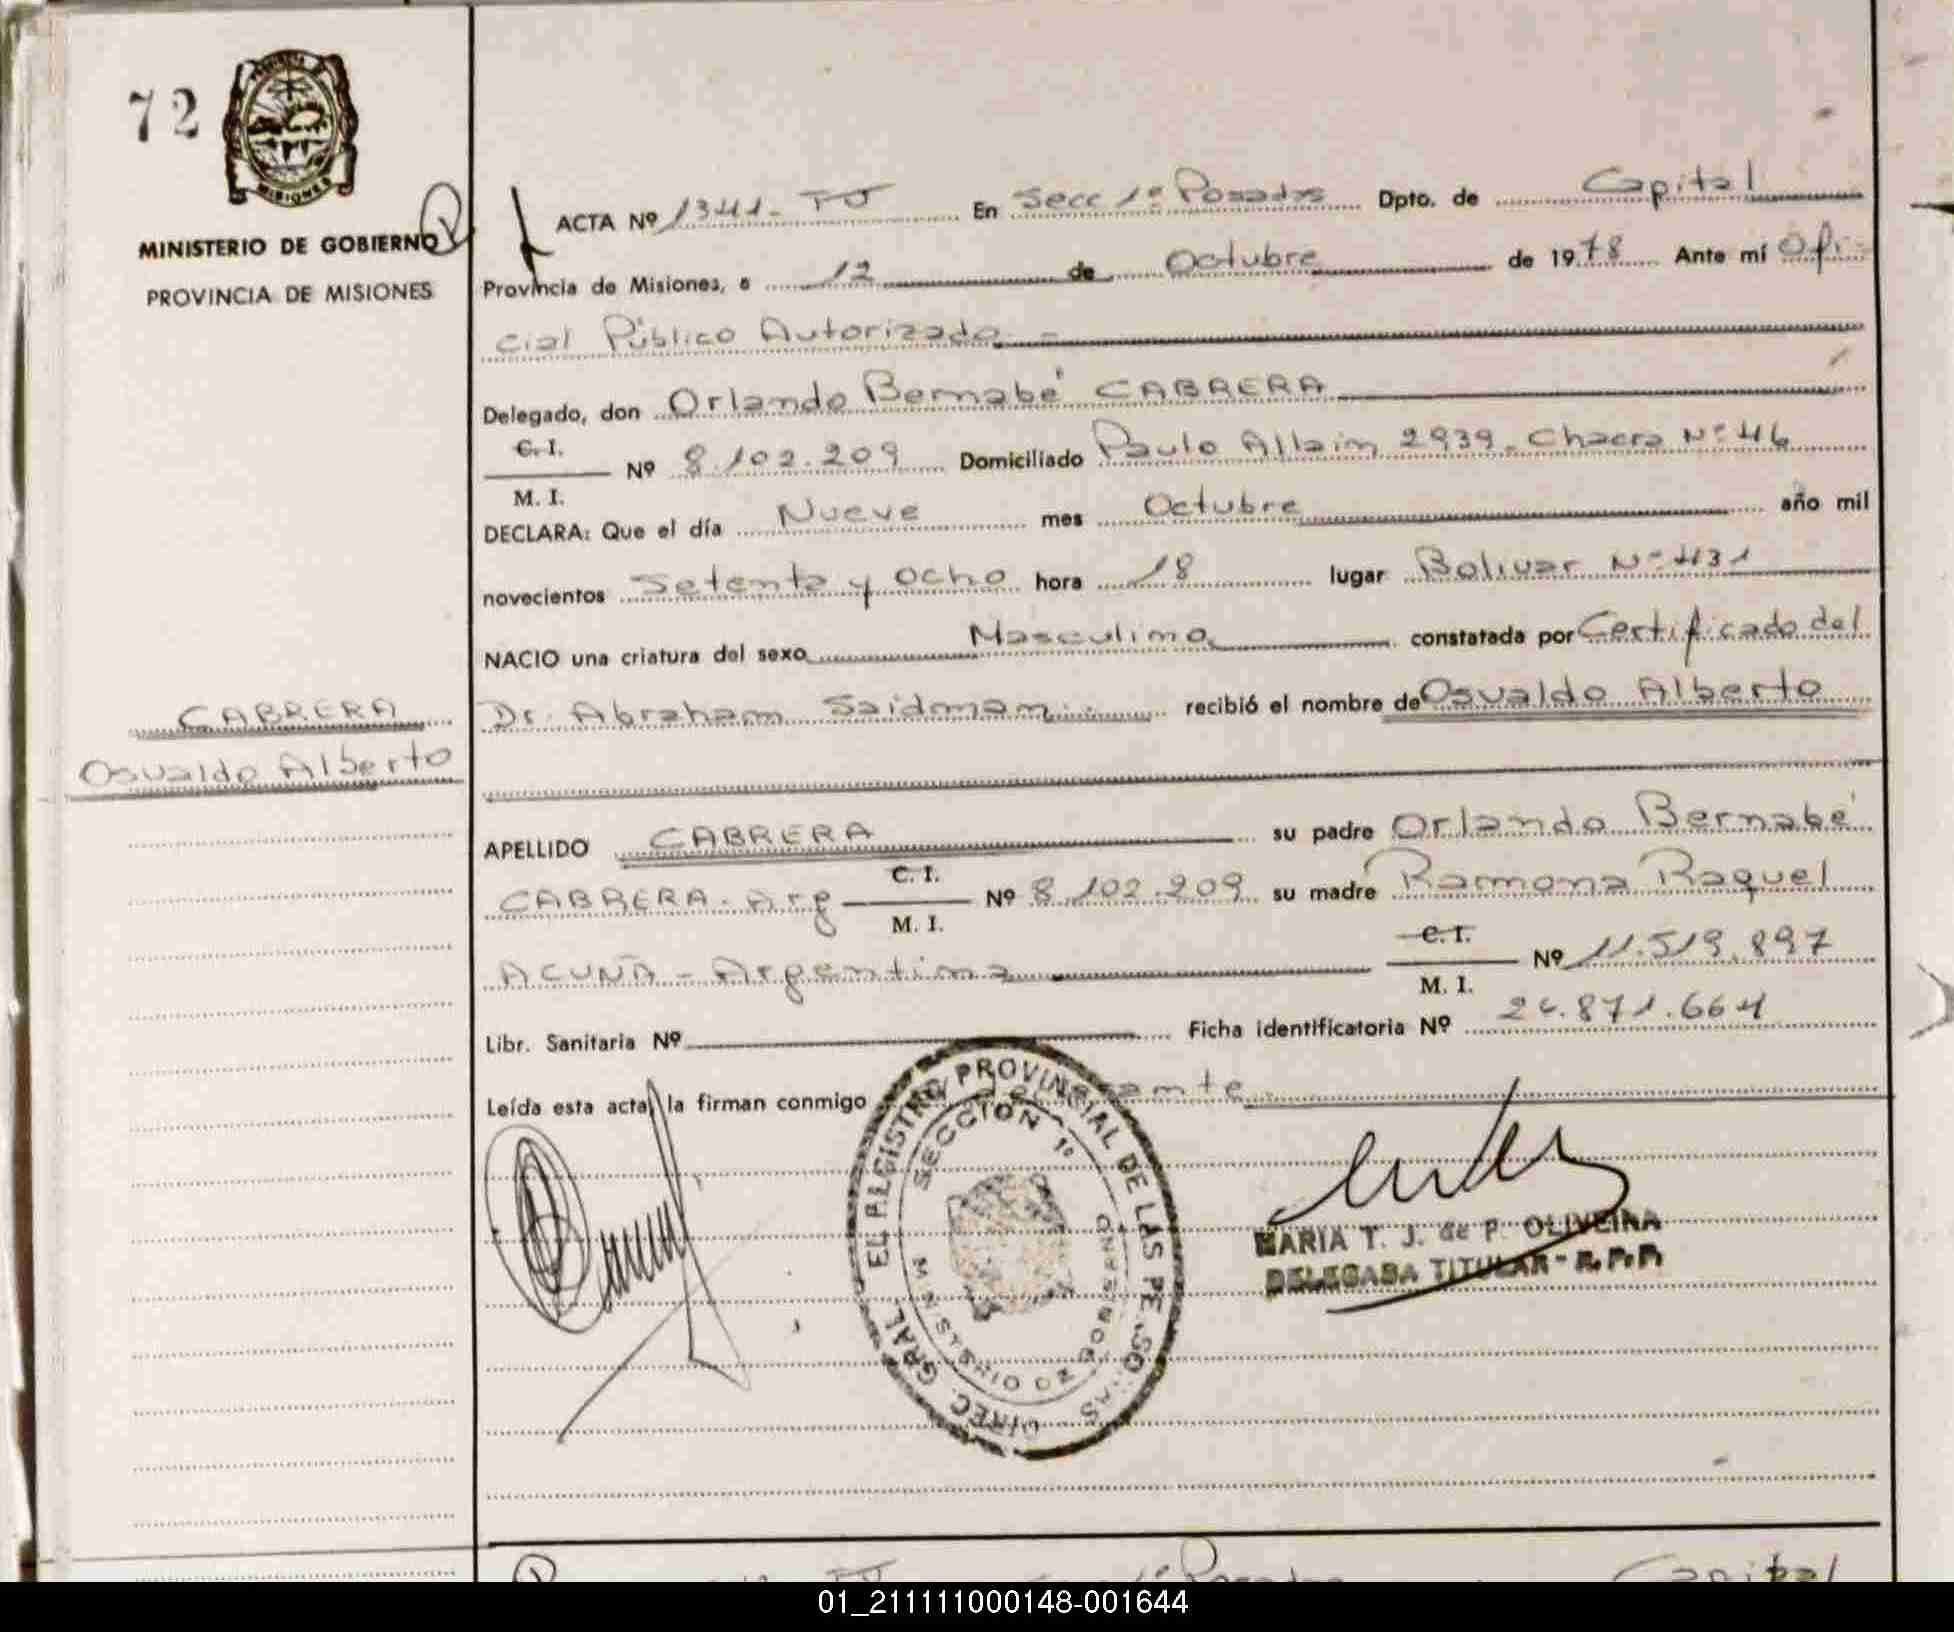 72
MISIONES
MINISTERIO DE GOBIERNO
PROVINCIA DE MISIONES
ACTA Nº 1341- TJ En Secc 1º Posadas Dpto. de Capital
Provincia de Misiones, a 12 de Octubre de 1978 Ante mí Ofi-
cial Público Autorizado -
Delegado, don Orlando Bernabé CABRERA
C. I.
Nº 8.102.209 Domiciliado Paulo Allain 2939. Chacra Nº 46
M. I.
DECLARA: Que el día Nueve mes Octubre año mil
novecientos Setenta y Ocho hora 18 lugar Bolivar Nº 431
NACIO una criatura del sexo Masculino constatada por Certificado del
Dr. Abraham Saidman recibió el nombre de Osvaldo Alberto
CABRERA
Osvaldo Alberto
APELLIDO CABRERA su padre Orlando Bernabé
CABRERA - Arg C. I. Nº 8.102.209 su madre Ramona Raquel
M. I.
ACUÑA - Argentina C. I. Nº 11.519.897
M. I.
Libr. Sanitaria Nº Ficha identificatoria Nº 26.871.664
Leída esta acta, la firman conmigo
DIREC. GRAL. DEL REGISTRO PROVINCIAL DE LAS PERSONAS
SECCION 1º
MINISTERIO DE GOBIERNO
MARIA T. J. de P. OLIVEIRA
DELEGADA TITULAR - R.P.P.
Capital
01_211111000148-001644